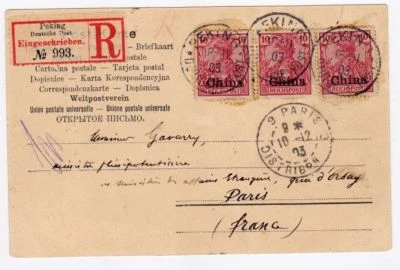 Peking
Deutsche Post
Eingeschrieben.
№ 993.
R
e
Briefkaart
Carte postale — Tarjeta postal
Dopisnice - Karta Korespondencyjna
Correspondenzkarte - Dopisnica
Weltpostverein
Union postale universelle — Unione postale universale
ОТКРЫТОЕ ПИСЬМО.
PEKING
10 10
REICHSPOST
China
PEKING
10 10
REICHSPOST
China
10 10
REICHSPOST
China
9 PARIS
10 - 12
03
DISTRIBON
Monsieur Gavarry,
ministre plénipotentiaire
au Ministère des affaires Etrangères, quai d'Orsay
Paris
(france)